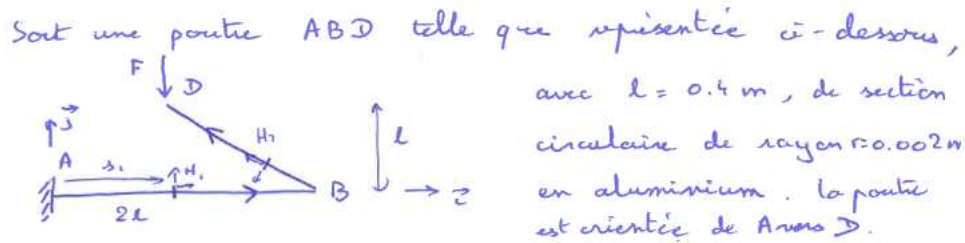 Soit une poutre ABD telle que représentée ci-dessous,
avec l = 0.4 m, de section
circulaire de rayon r=0.002m
en aluminium. la poutre
est orientée de A vers D.
F
D
j
H2
l
A
s1
H1
B
i
2l